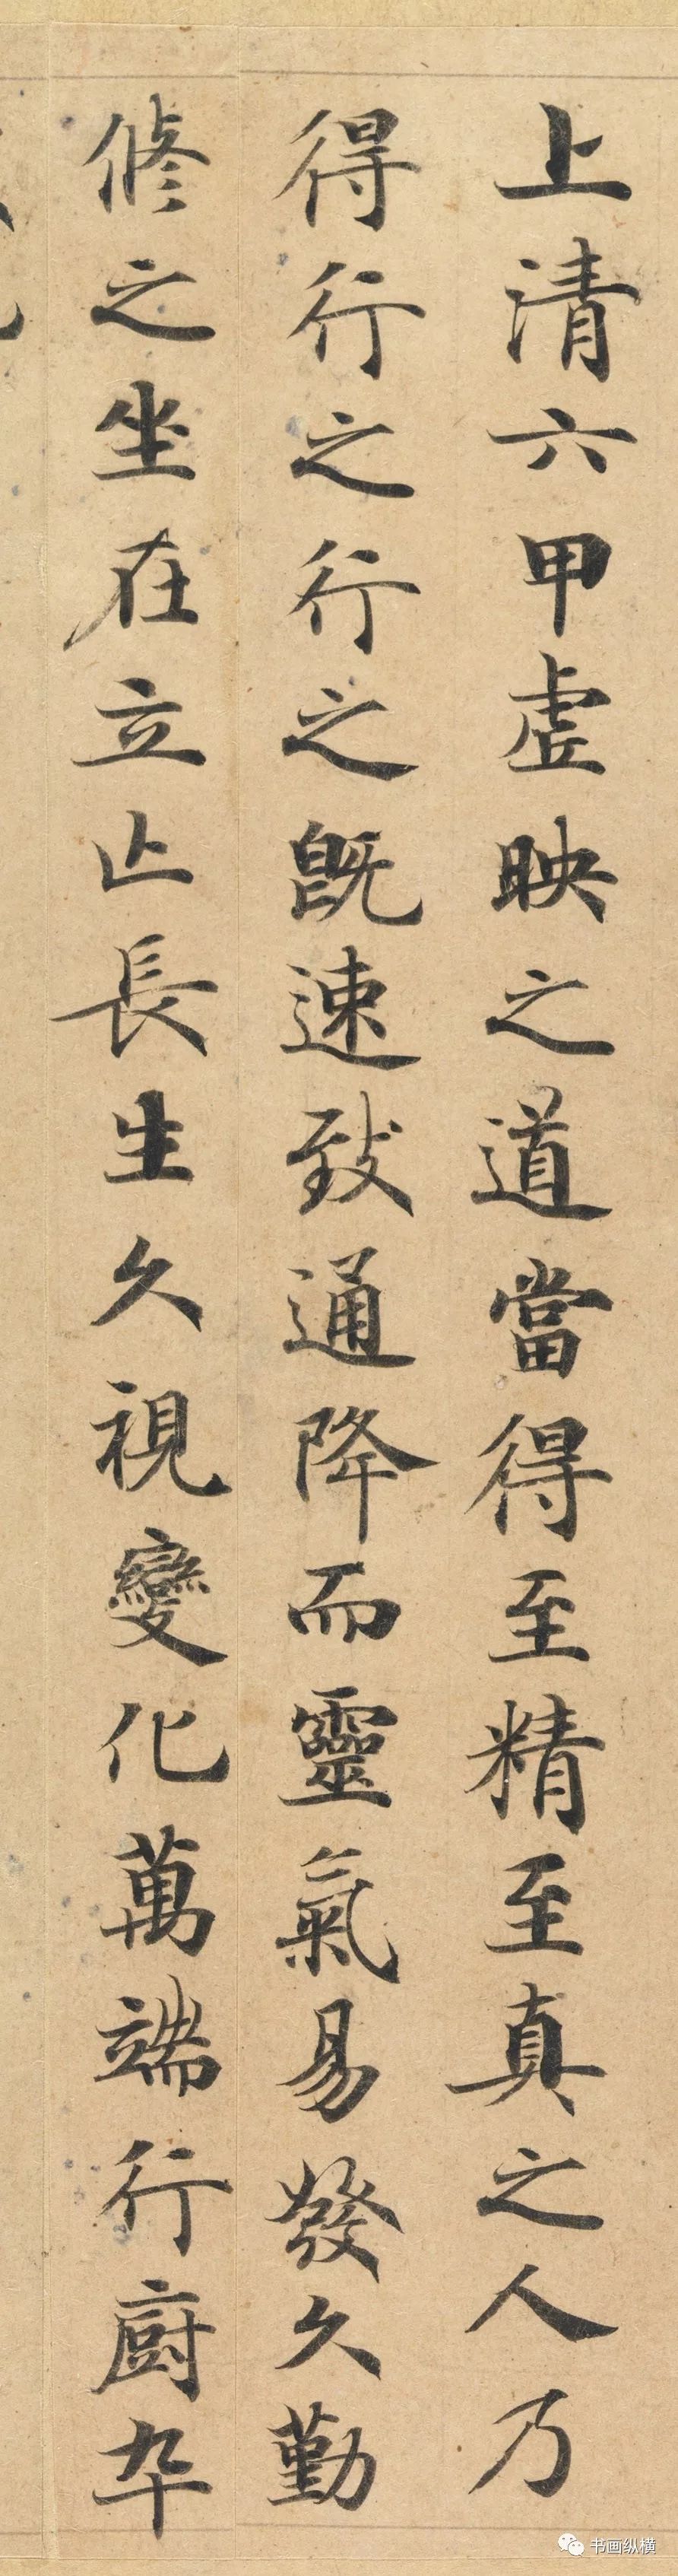 上清六甲虛映之道當得至精至真之人乃
得行之行之既速致通降而靈氣易發久勤
修之坐在立亡長生久視變化萬端行廚卒
书画纵横